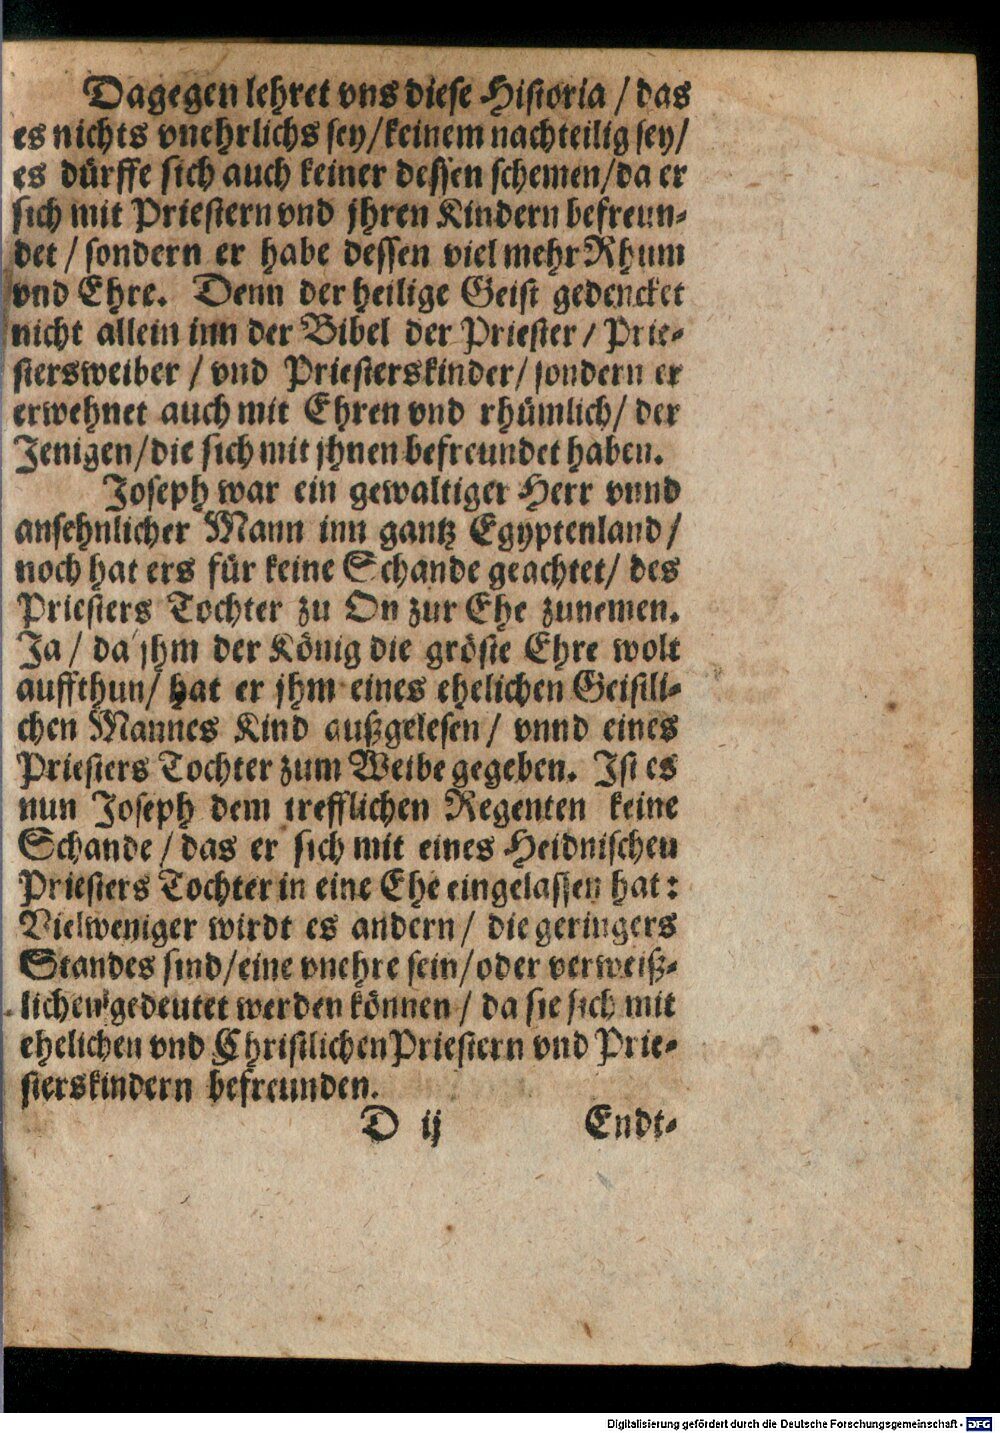 Dagegen lehret vns diese Historia / das
es nichts vnehrlichs sey / keinem nachteilig sey /
es dürffe sich auch keiner dessen schemen / da er
sich mit Priestern vnd jhren Kindern befreun-
det / sondern er habe dessen viel mehr Rhum
vnd Ehre. Denn der heilige Geist gedencket
nicht allein inn der Bibel der Priester / Prie-
stersweiber / vnd Priesterskinder / sondern er
erwehnet auch mit Ehren vnd rhümlich / der
Jenigen / die sich mit jhnen befreundet haben.
Joseph war ein gewaltiger Herr vnnd
ansehnlicher Mann inn gantz Egyptenland /
noch hat ers für keine Schande geachtet / des
Priesters Tochter zu On zur Ehe zunemen.
Ja / da jhm der König die gröste Ehre wolt
auffthun / hat er jhm eines ehelichen Geistli-
chen Mannes Kind außgelesen / vnnd eines
Priesters Tochter zum Weibe gegeben. Ist es
nun Joseph dem trefflichen Regenten keine
Schande / das er sich mit eines Heidnischen
Priesters Tochter in eine Ehe eingelassen hat:
Vielweniger wirdt es andern / die geringers
Standes sind / eine vnehre sein / oder verweiß-
lichen gedeutet werden können / da sie sich mit
ehelichen vnd Christlichen Priestern vnd Prie-
sterskindern befreunden.
D ij Endt-
Digitalisierung gefördert durch die Deutsche Forschungsgemeinschaft - DFG